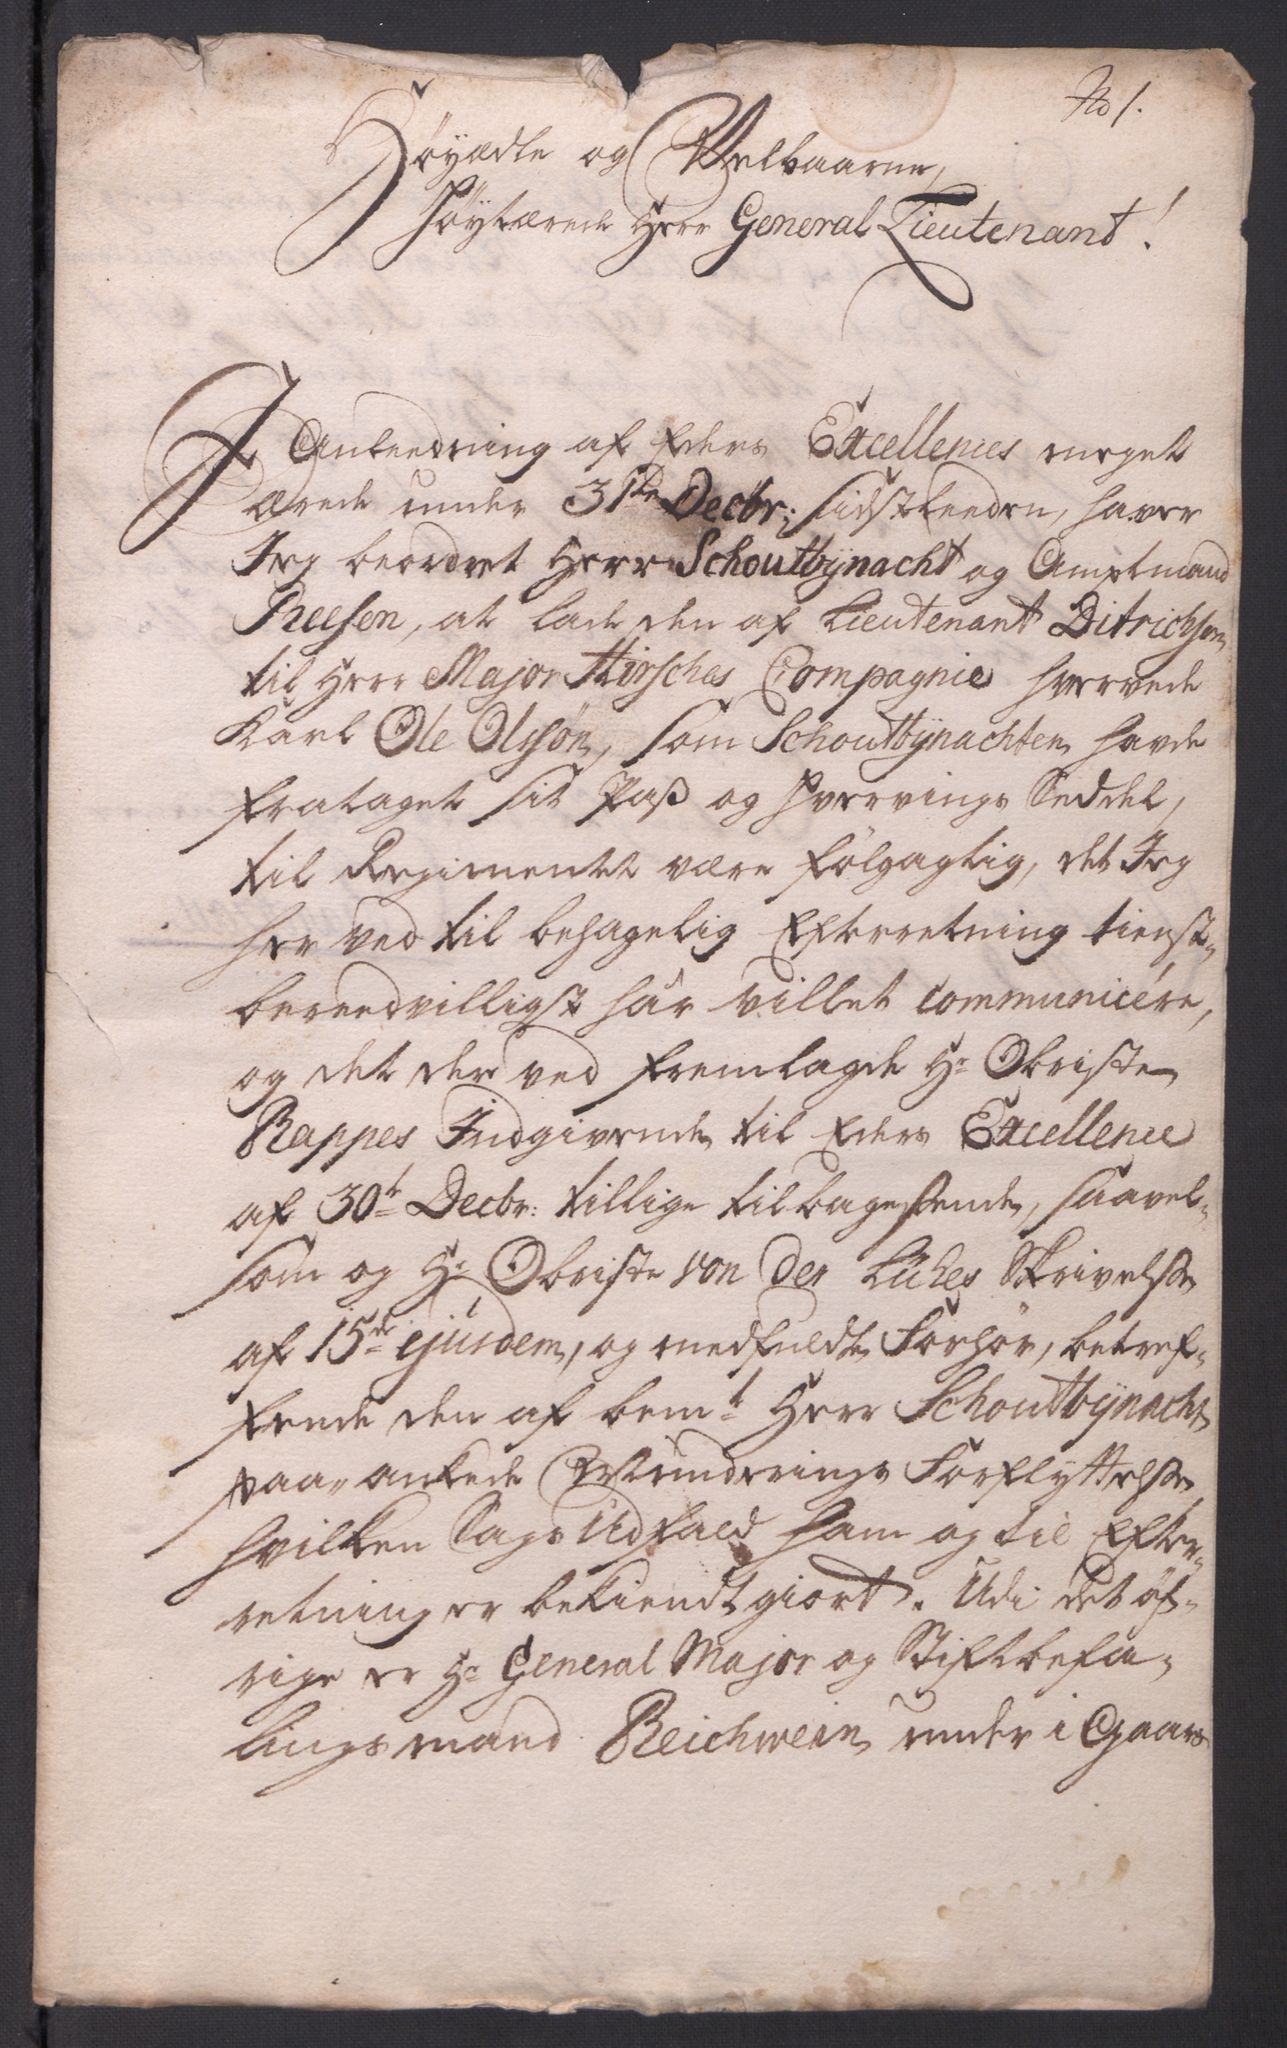 No 1.
Höyædle og Velbaarne,
Höytærede Herr General Lieutenant!
I Anleedning af Eders Excellences meget
ærede under 31te Decbr: sidstleeden, haver
Jeg beordret Herr Schoutbynacht og Amptmand
Reesen, at lade den af Lieutenant Ditrichsen
til Herr Major Hirsches Compagnie hvervede
Karl Ole Olssön, som Schoutbynachten havde
frataget sit Pass og Hvervings Seddel,
til Regimentet være fölgagtig, det Jeg
her ved til behagelig Efterretning tienst-
bereedvilligst har villet communicére,
og det der ved fremlagde Hr Obriste
Rappes Indgivende til Eders Excellence
af 30t Decbr: tillige tilbagesende, saavel-
som og Hr Obriste von der Lühes Skrivelse
af 15de ejusdem, og medfuldte Forhör, betref-
fende den af bemt Herr Schoutbynacht
paa-ankede Rulerings Forflyttelse,
hvilken Sags Udfald ham og til Efter-
retning er bekiendtgiort. Udi det öf-
rige er Hr General Major og Stiftbefa-
lingsmand Reichwein under i Gaars